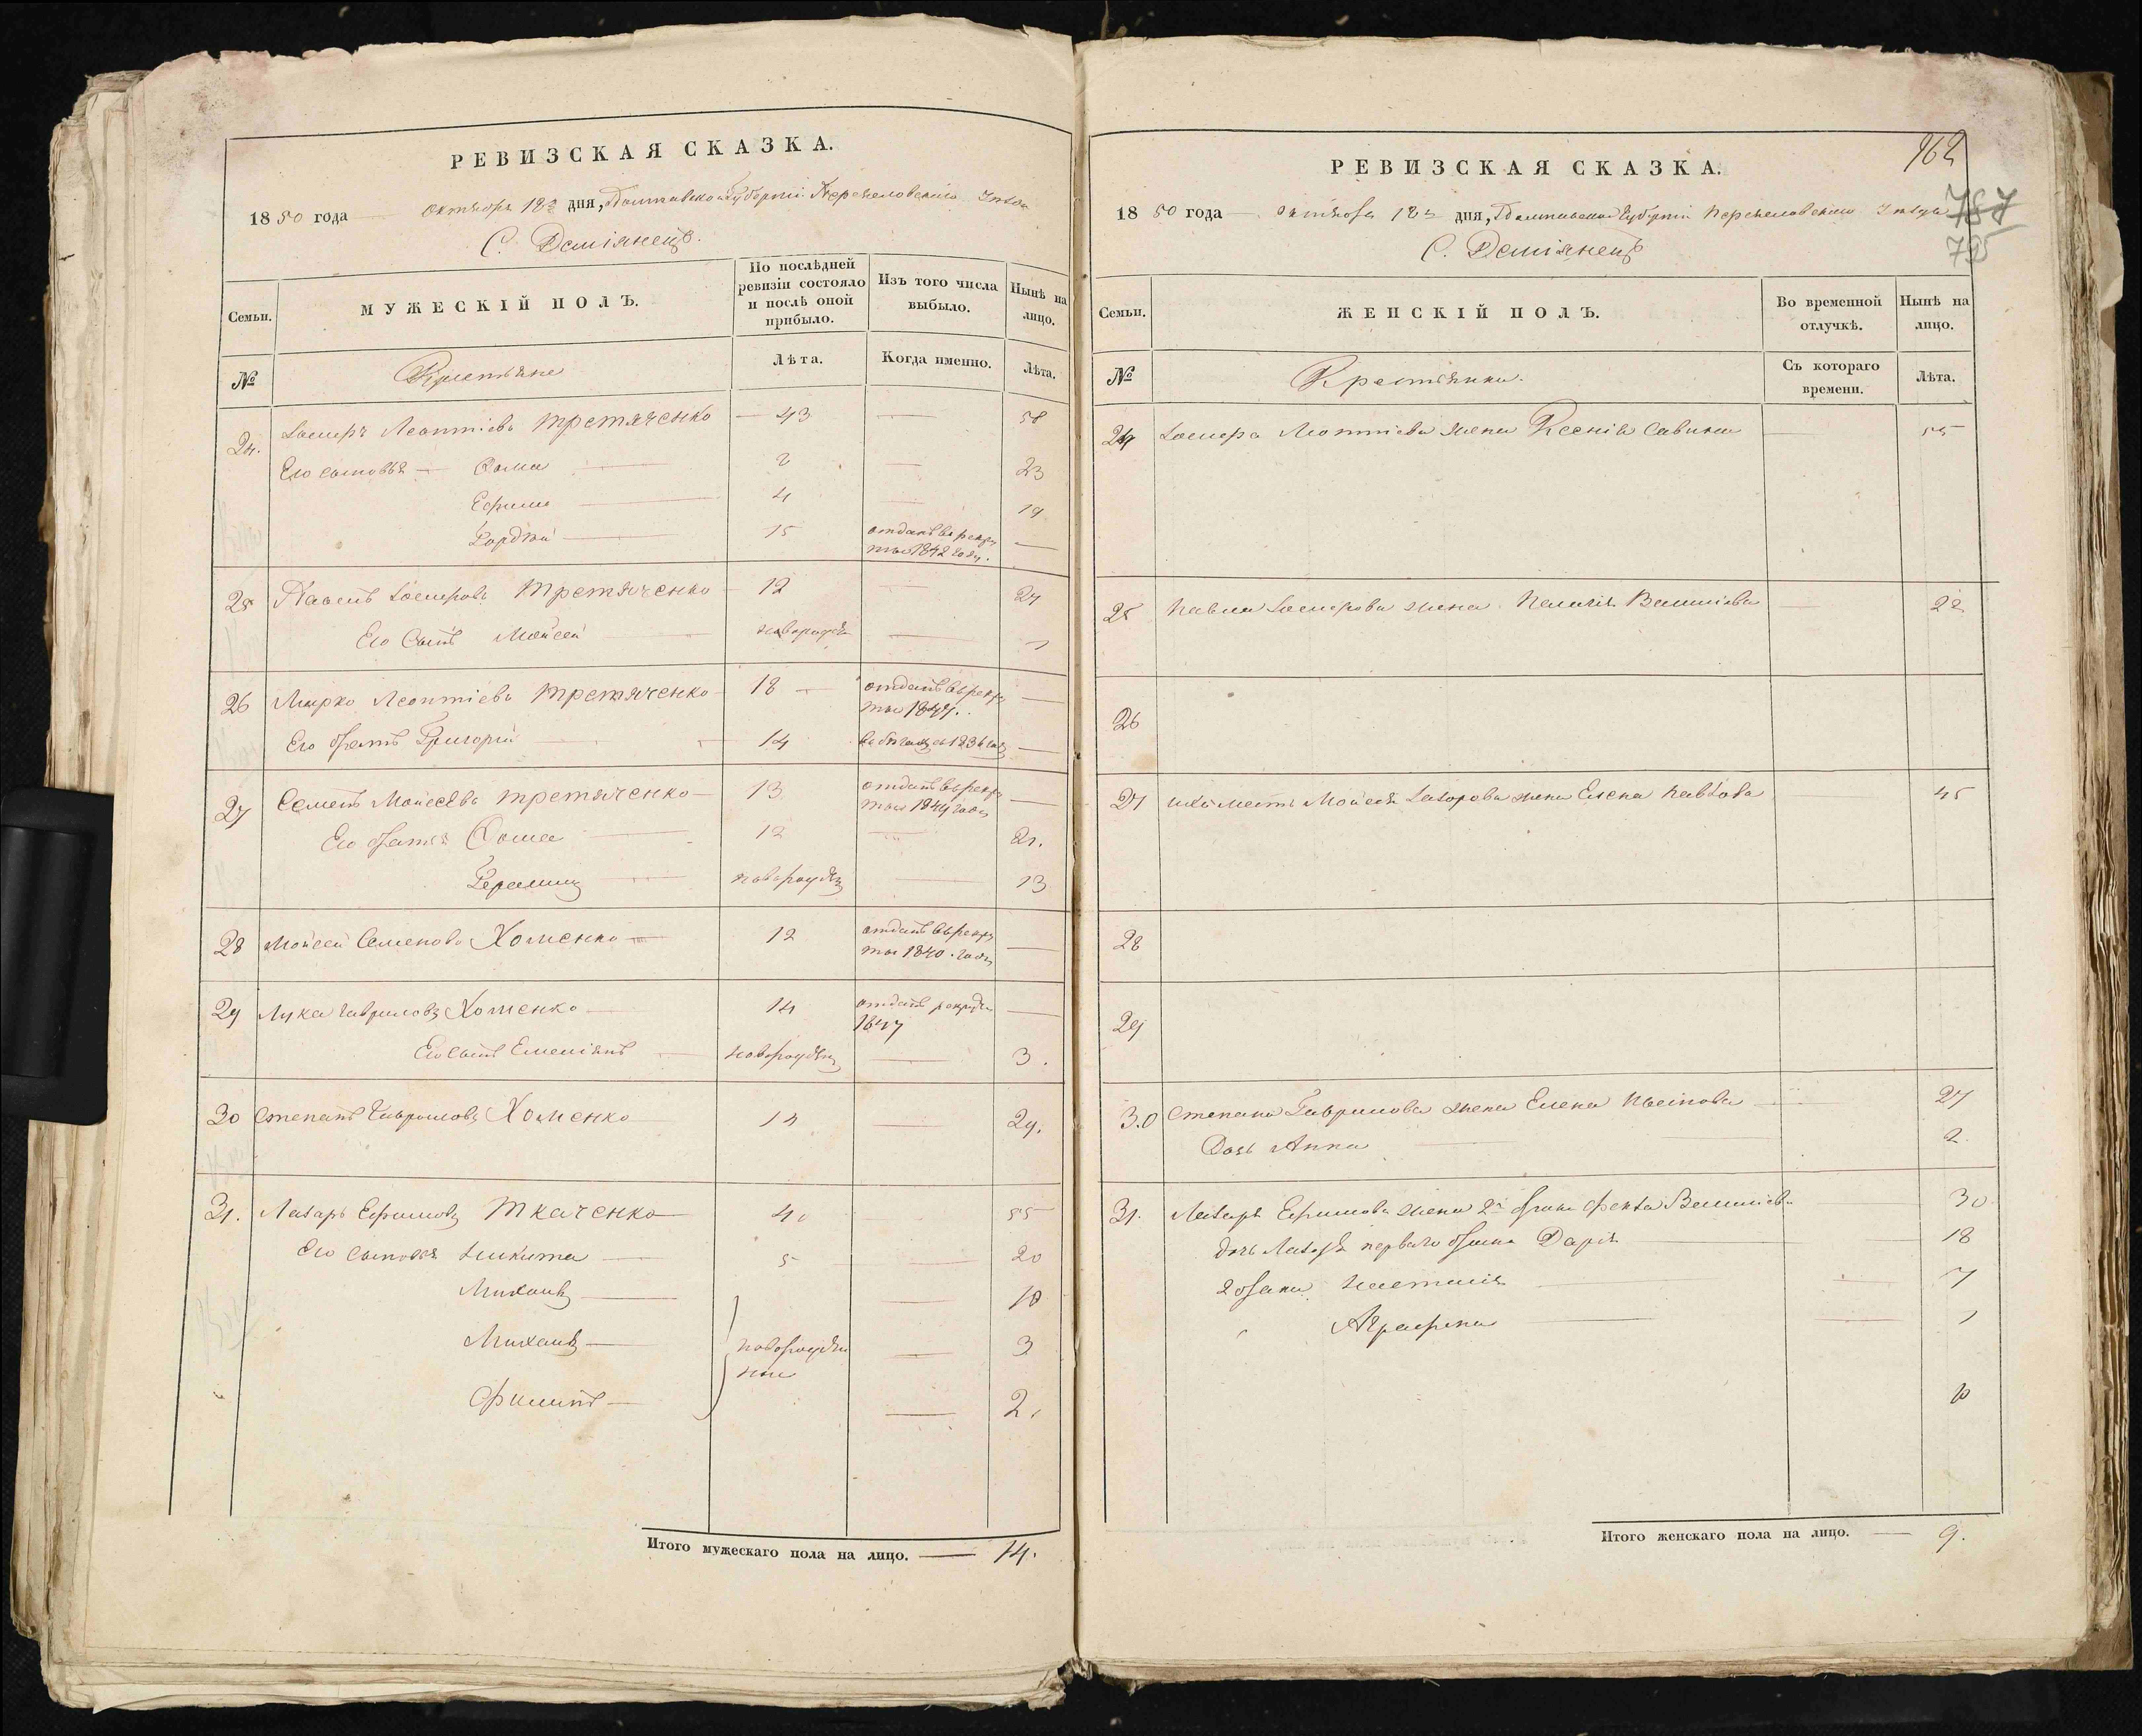 РЕВИЗСКАЯ СКАЗКА.
1850 года октября 18 дня, Полтавской Губерніи Переяславскаго Уезда
С. Деміянецъ.
Семьи.
МУЖЕСКІЙ ПОЛЪ.
По послѣдней ревизіи состояло и послѣ оной прибыло.
Изъ того числа выбыло.
Нынѣ на лицо.
№
Крестьяне
Лѣта.
Когда именно.
Лѣта.
24. Леонтіевъ Третяченко — 43 — 58
Его сыновья — Фома 2 — 23
Ефимъ — 4 — 19
Гордѣй — 15 отданъ въ рекру
ты 1842 году. —
25 Павелъ Третяченко — 12 — 27
Его Сынъ Мойсей новорожде — 1
26 Марко Леонтіевъ Третяченко — 18 — отданъ въ рекру
ты 1847. —
Его братъ Григорій — 14 въ бѣгахъ съ 1836 года —
27 Семенъ Мойсеевъ Третяченко — 13 отданъ въ рекру
ты 1844 году —
Его братья Фома — 12 — 27.
Герасимъ новорожден — 13
28 Мойсей Семеновъ Хоменко — 12 отданъ въ рекру
ты 1840. году —
29 Лука Гавриловъ Хоменко — 14 отданъ рекруты
1847 —
Его сынъ Емеліянъ новорожден — 3.
30 Степанъ Гавриловъ Хоменко 14 — 29.
31. Лазарь Ефимовъ Ткаченко 40 — 55
Его сыновья Никита 5 — 20
Михаилъ — 10
Михаилъ — новорожден — 3
ные
Филипъ — 2.
Итого мужескаго пола на лицо. — 14.
РЕВИЗСКАЯ СКАЗКА.
962
1850 года октября 18 дня, Полтавской Губерніи Переяславскаго Уезда
787
795
С. Деміянецъ
Семьи.
ЖЕНСКІЙ ПОЛЪ.
Во временной отлучкѣ.
Нынѣ на лицо.
№
Крестьянки.
Съ котораго времени.
Лѣта.
24 Леонтіева жена Ксенія Савина — 55
25 Павла жена Васильева — 22
26
27 мать Мойсея жена Елена Павлова 45
28
29
30 Степана Гаврилова жена Елена — 27
Дочь Анна — 2
31. Лазаря Ефимова жена 2го брака Фекла Васильева 30
дочь Лазаря перваго брака Дарія — 18
2 брака Настасія — 7
Аграфена — 1
10
Итого женскаго пола на лицо. — 9.